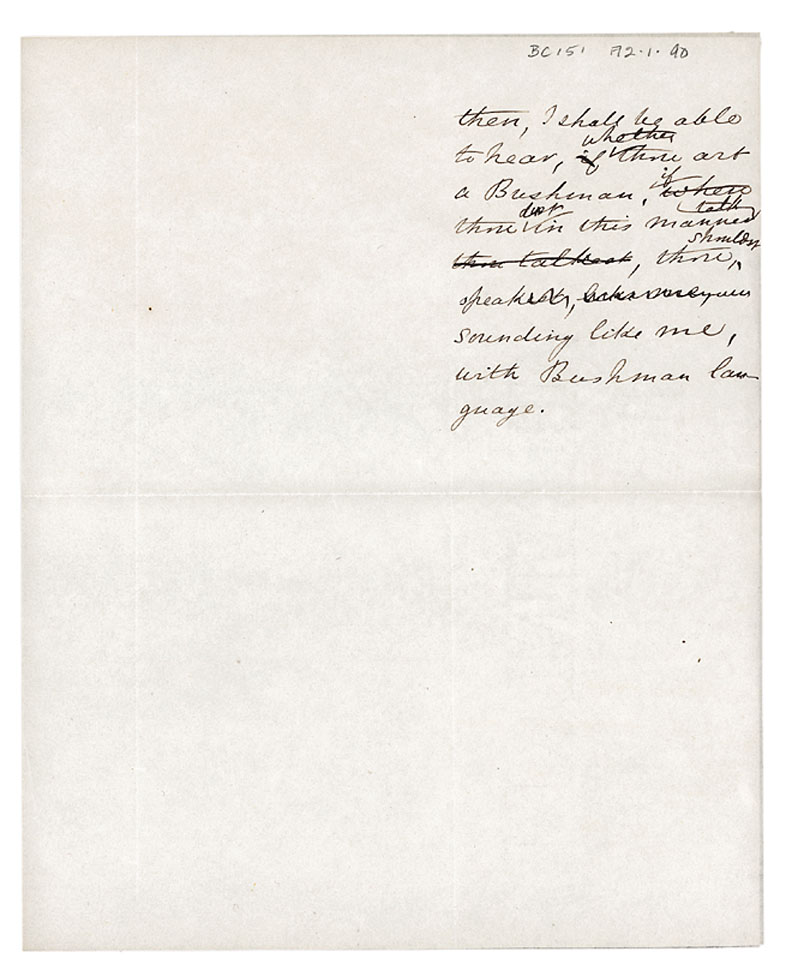 BC151 A2.1.90
then, I shall be able
whether
to hear, if thou art
if
a Bushman, when
dost talk
thou in this manner
shouldst
thou talkest, thou,
speak
sounding like me,
with Bushman lan-
guage.